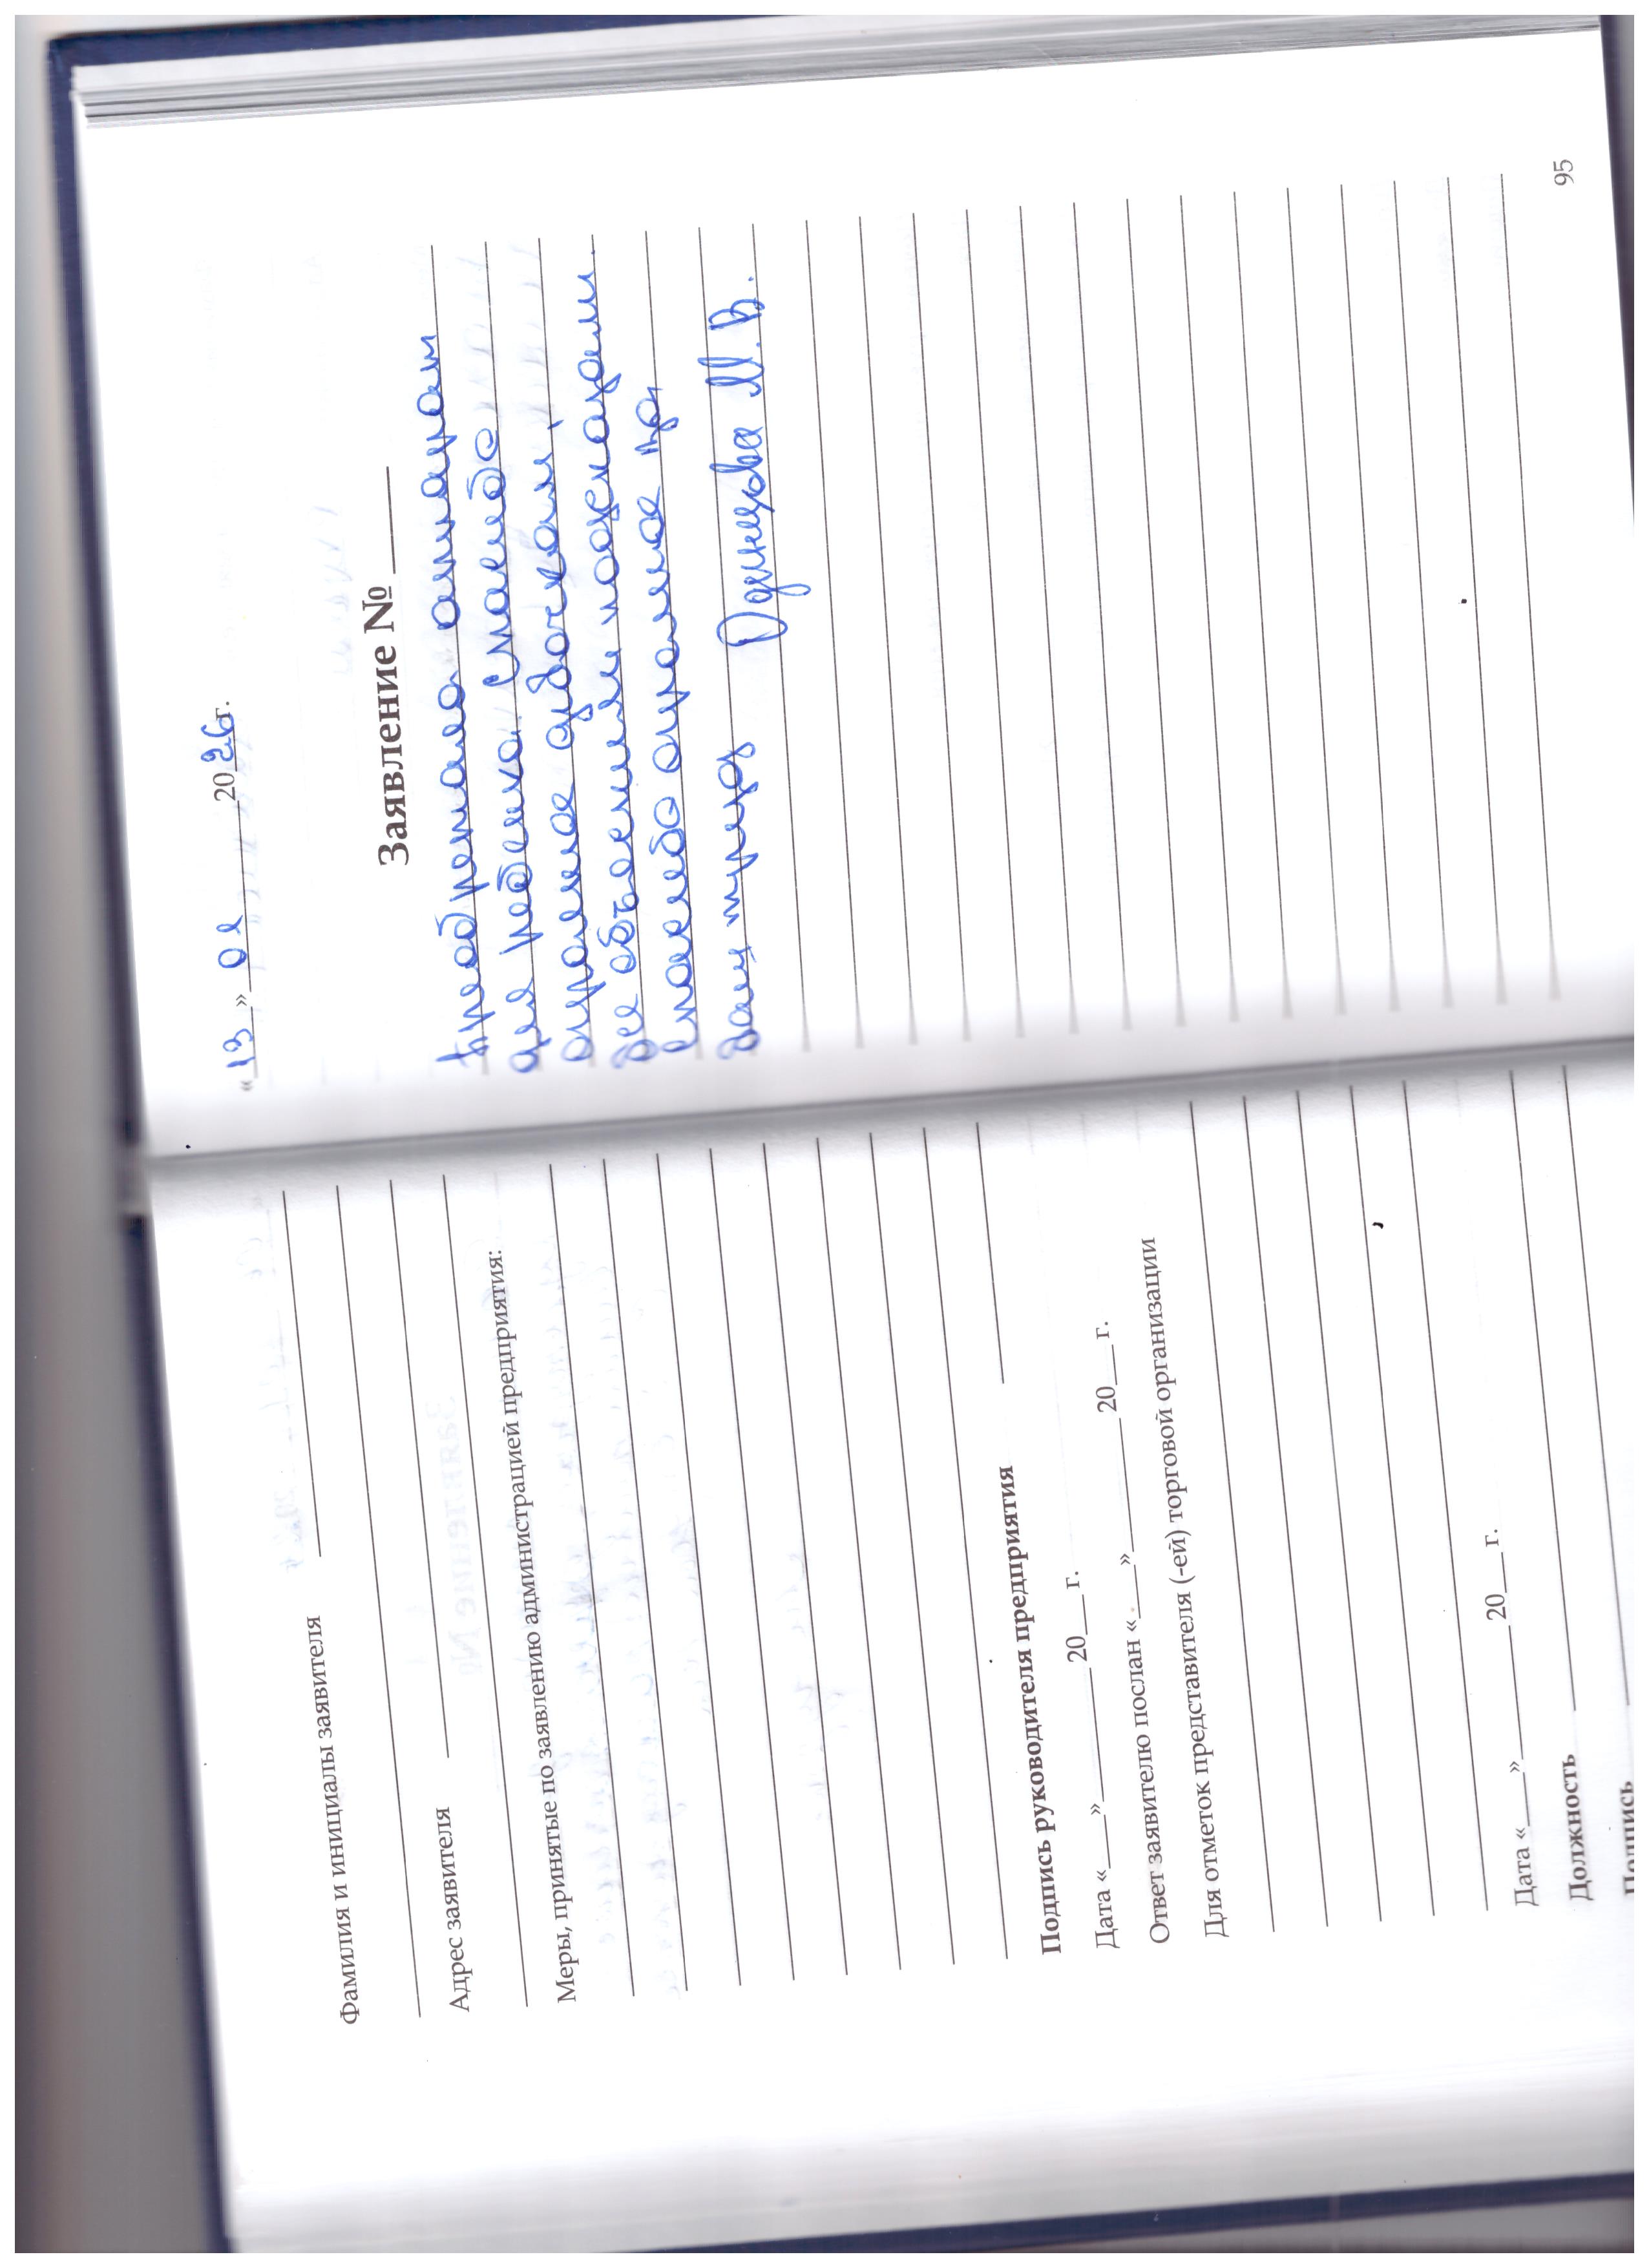 Фамилия и инициалы заявителя
Адрес заявителя
Меры, принятые по заявлению администрацией предприятия:
Подпись руководителя предприятия
Дата «___»__________ 20___ г.
Ответ заявителю послан «___»__________ 20___ г.
Для отметок представителя (-ей) торговой организации
Дата «___»__________ 20___ г.
Должность
Подпись
«13» 01 2026г.
Заявление №
Приобретала аппарат
для ребенка. Спасибо
огромное девочкам,
все объяснили показали.
Спасибо огромное за
Ваш труд Одинцова М.В.
95